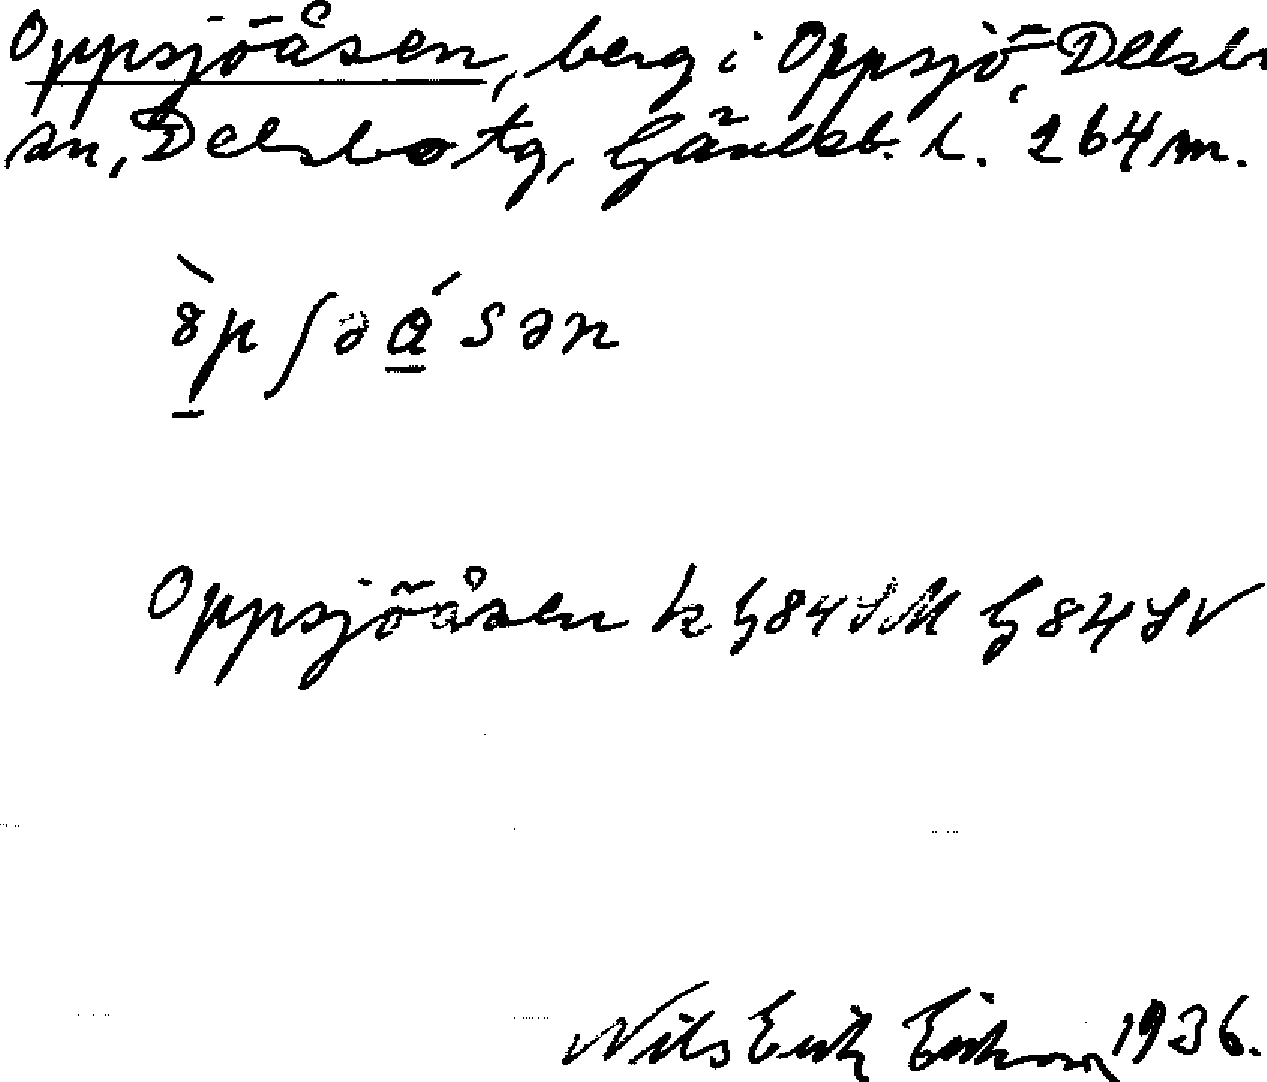 Oppsjöåsen, berg i Oppsjö, Delsbo
sn, Delsbo tg, Gävleb. l. 264 m.
Oppsjöåsen k G84SM G84SV
Nils Erik Eriksson 1936.